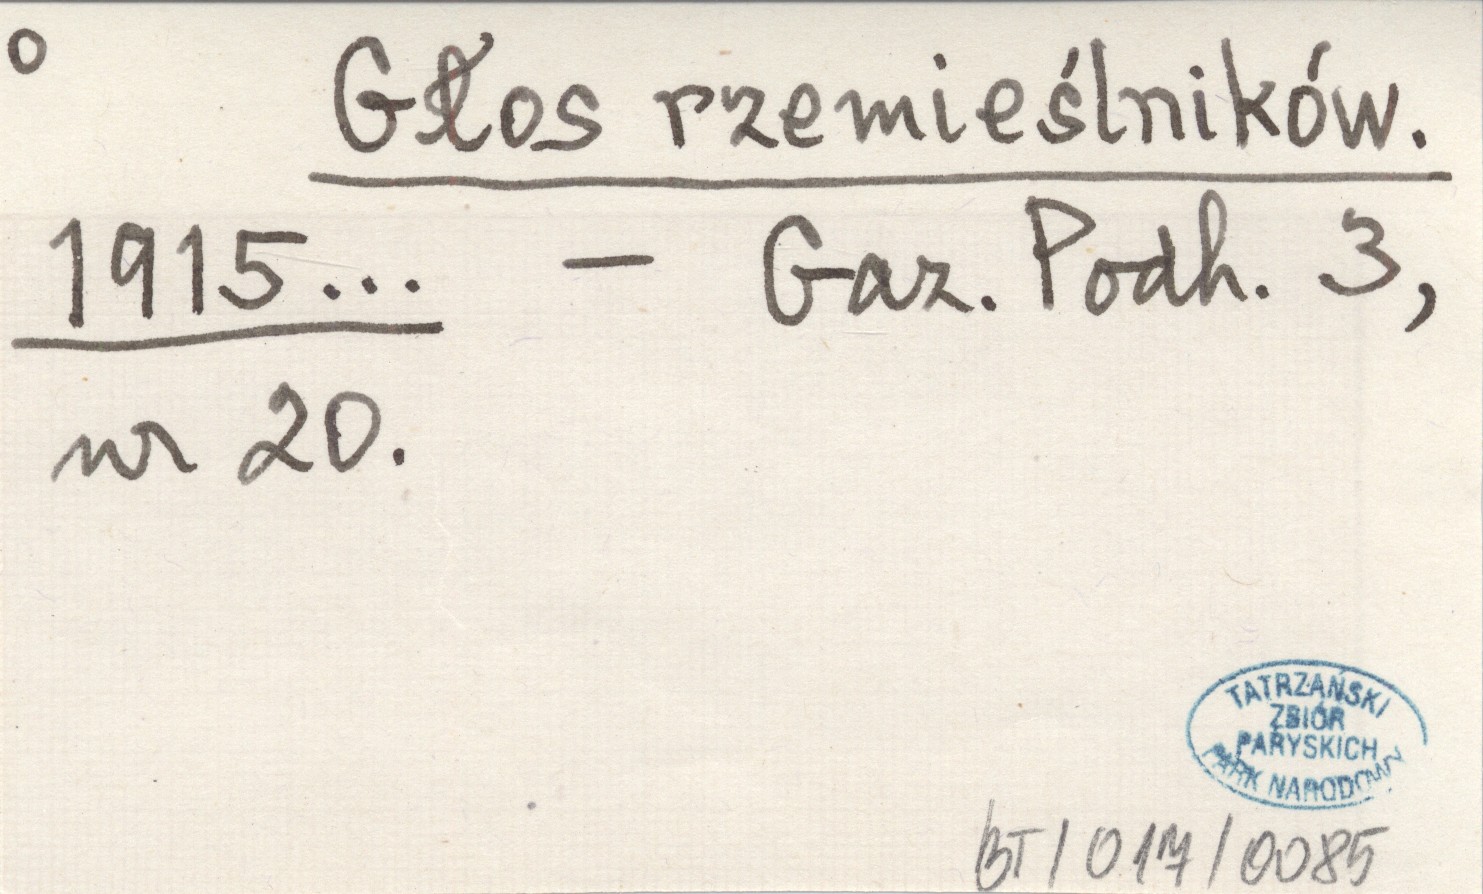 o Głos rzemieślników.
1915... – Gaz. Podh. 3,
nr 20.
TATRZAŃSKI
ZBIÓR
PARYSKICH
PARK NARODOWY
BT/017/0085